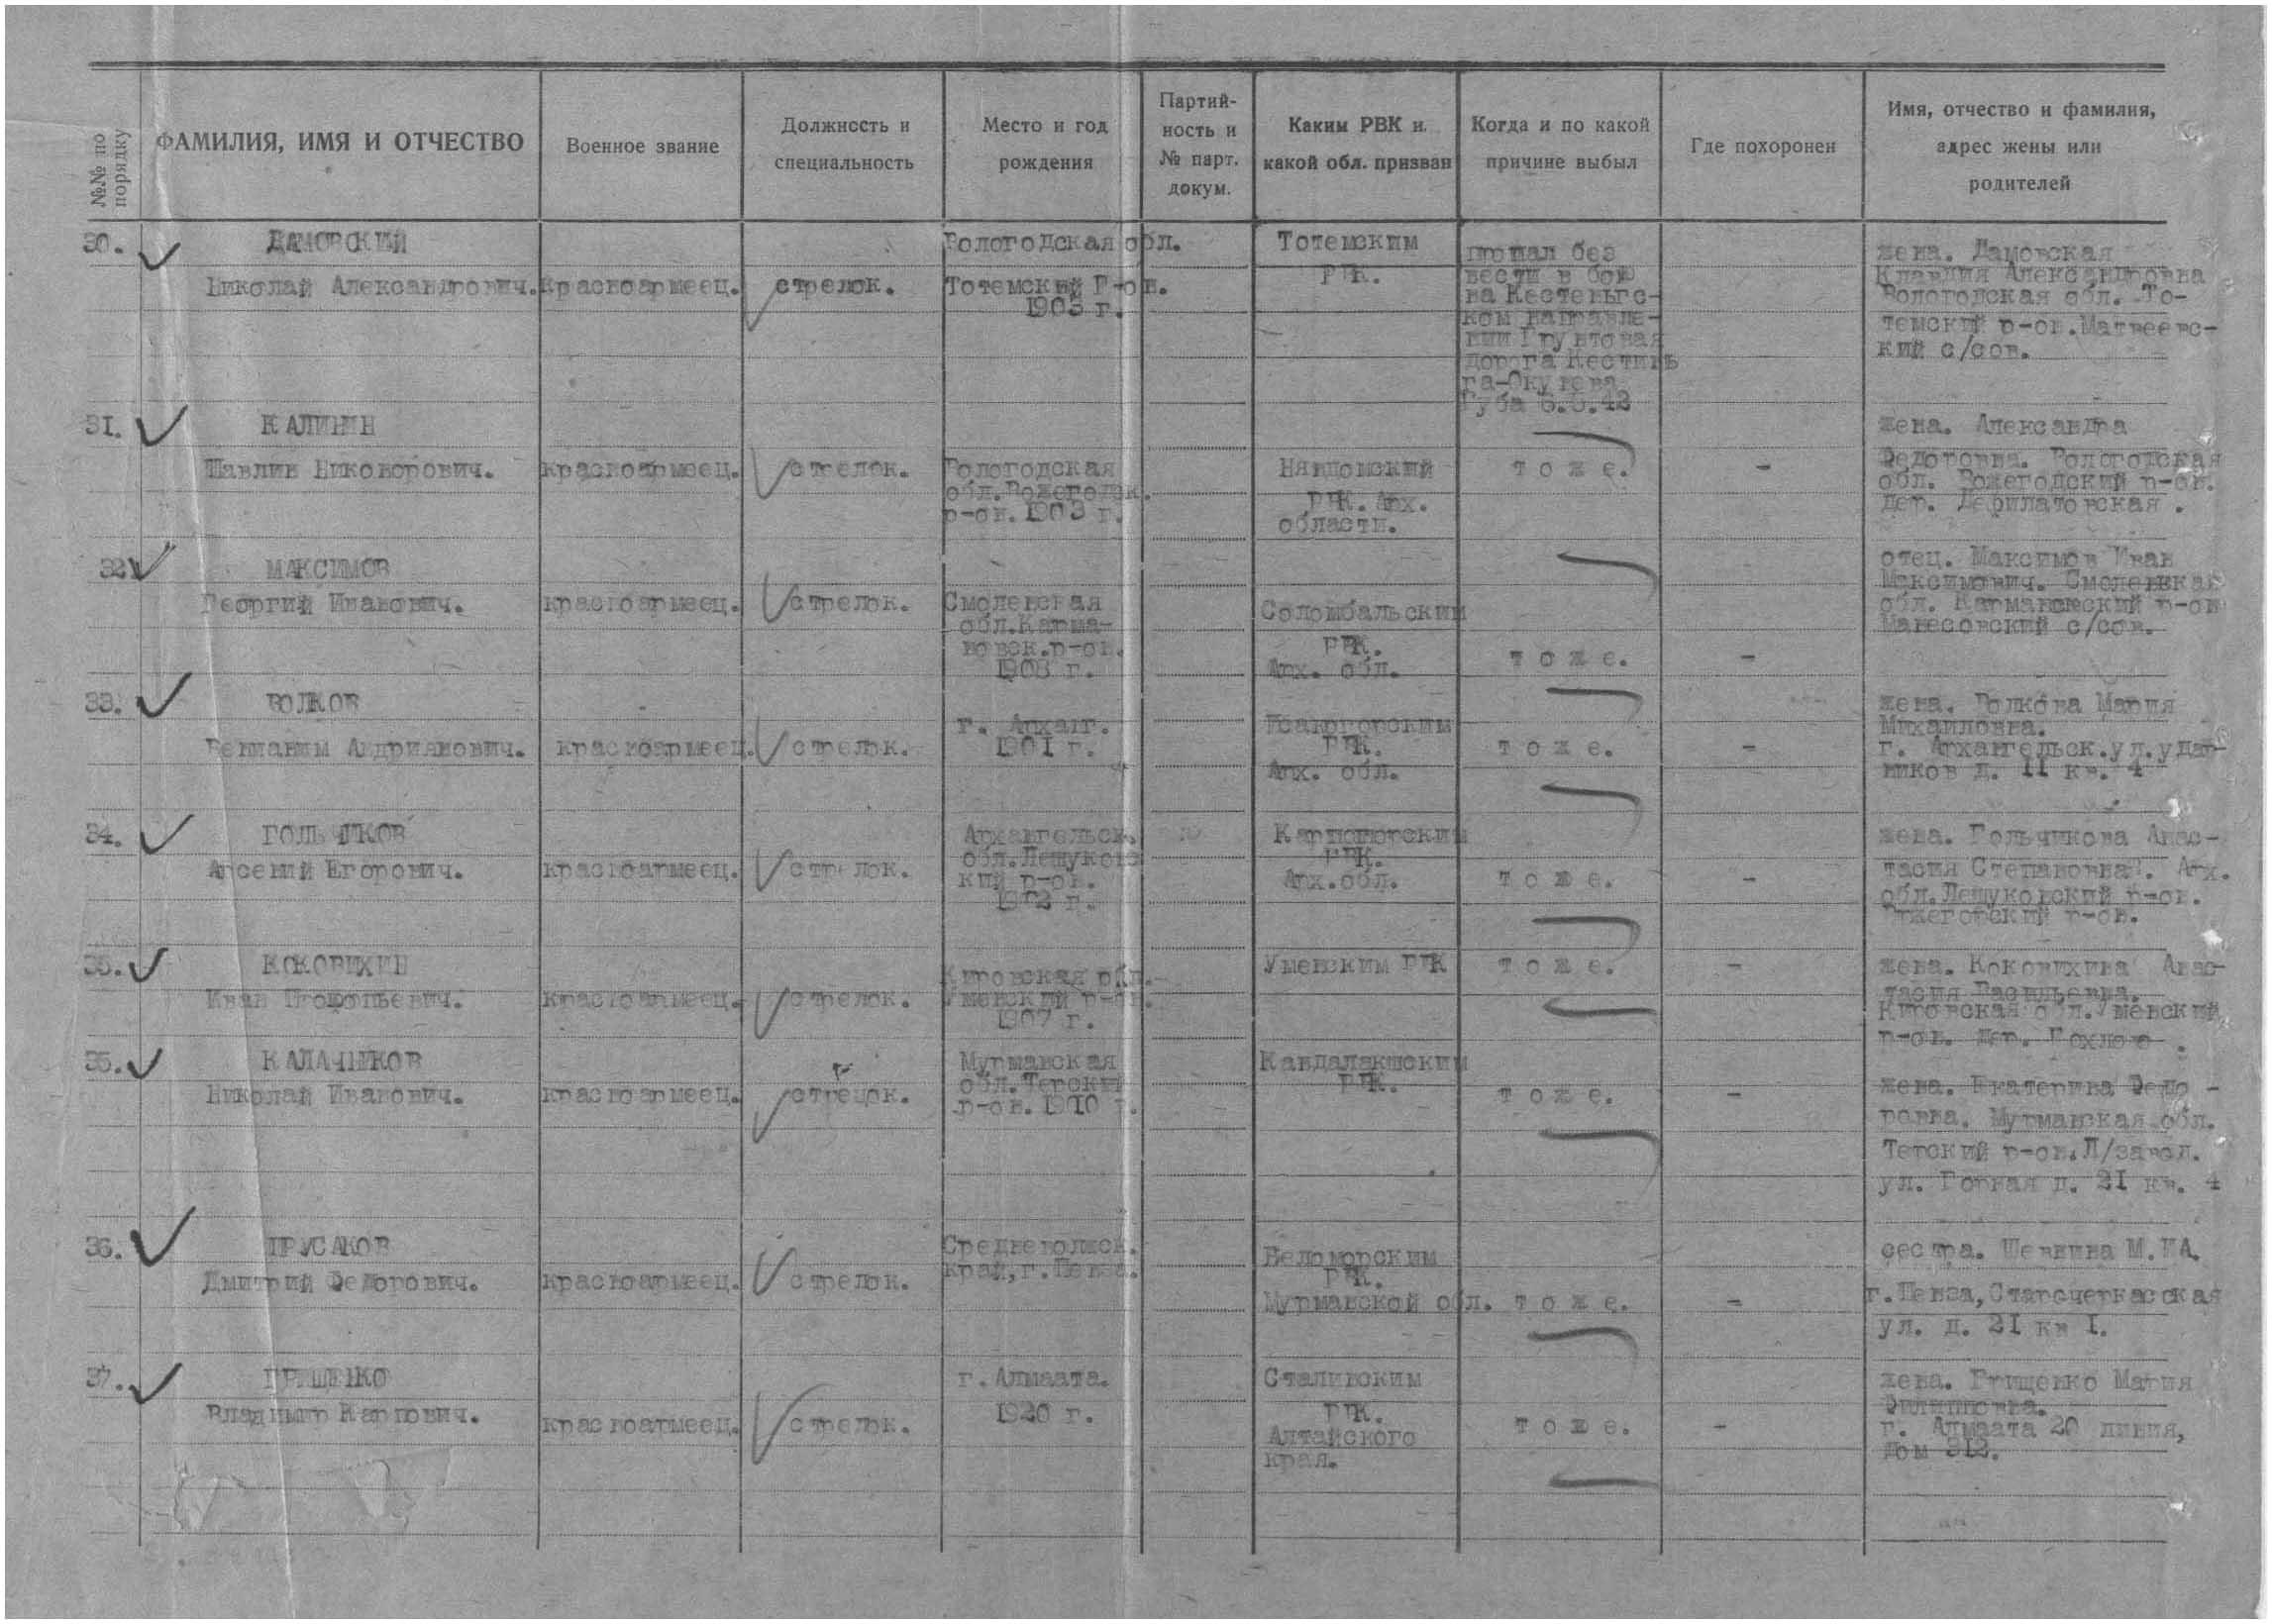 №№ по порядку
ФАМИЛИЯ, ИМЯ И ОТЧЕСТВО
Военное звание
Должность и
специальность
Место и год
рождения
Партий-
ность и
№ парт.
докум.
Каким РВК и
какой обл. призван
Когда и по какой
причине выбыл
Где похоронен
Имя, отчество и фамилия,
адрес жены или
родителей
30.
ДАМОВСКИЙ
Николай Александрович.
Красноармеец.
стрелок.
Вологодская обл.
Тотемский Р-он.
1903 г.
Тотемским
РВК.
пропал без
вести в бою
на Кестеньгс-
ком направле-
нии Грунтовая
дорога Кестинь
га-Окунева
Губа 6.5.42
жена. Дамовская
Клавдия Александровна
Вологодская обл. То-
темский р-он.Матвеевс-
кий с/сов.
31.
КАЛИНИН
Павлин Никонорович.
красноармеец.
стрелок.
Вологодская
обл.Вожегодск.
р-он. 1903 г.
Няндомский
РВК. Арх.
области.
т о ж е.
-
жена. Александра
Федоровна. Вологодская
обл. Вожегодский р-он.
дер.
32
МАКСИМОВ
Георгий Иванович.
красноармеец.
стрелок.
Смоленская
обл.Карма-
новск.р-он.
1908 г.
Соломбальским
РВК.
Арх. обл.
т о ж е.
-
отец. Максимов Иван
Максимович. Смоленская
обл. Кармановский р-он
с/сов.
33.
ВОЛКОВ
Вениамим Андриянович.
красноармеец.
стрелок.
г. Арханг.
1901 г.
Исакогорским
РВК.
Арх. обл.
т о ж е.
-
жена. Волкова Мария
Михаиловна.
г. Архангельск.ул.удар-
ников д. 11 кв. 4
34.
ГОЛЬЧИКОВ
Арсений Егорович.
красноармеец.
стрелок.
Архангельск.
обл.Лешуконс
кий р-он.
1902 г.
РВК.
Арх.обл.
т о ж е.
-
жена. Гольчикова Анас-
тасия Степановна. Арх.
обл.Лешуковский р-он.
р-он.
35.
КОКОВИХИН
Иван Прокопьевич.
красноармеец.
стрелок.
Кировская обл.
р-он.
1907 г.
РВК
т о ж е.
-
жена. Коковихина Анас-
тасия Васильевна.
Кировская обл.
р-он. дер.
35.
КАЛАЧНИКОВ
Николай Иванович.
красноармеец.
стрелок.
Мурманская
обл.Терский
р-он. 1910 г.
Кандалакшским
РВК.
т о ж е.
-
жена. Екатерина Федо -
ровна. Мурманская обл.
Терский р-он.Л/завод.
ул. Горная д. 21 кв. 4
36.
ПРУСАКОВ
Дмитрий Федорович.
красноармеец.
стрелок.
Средневолжск.
край,г.Пенза.
Беломорским
РВК.
Мурманской обл.
т о ж е.
-
сестра.
г.Пенза,Старочеркасская
ул. д. 21 кв 1.
37.
ГРИЩЕНКО
Владимир Карпович.
красноармеец.
стрелок.
г.Алмаата.
1920 г.
Сталинским
РВК.
Алтайского
края.
т о ж е.
-
жена. Грищенко Мария
Филипповна.
г. Алмаата 20 линия,
дом 312.